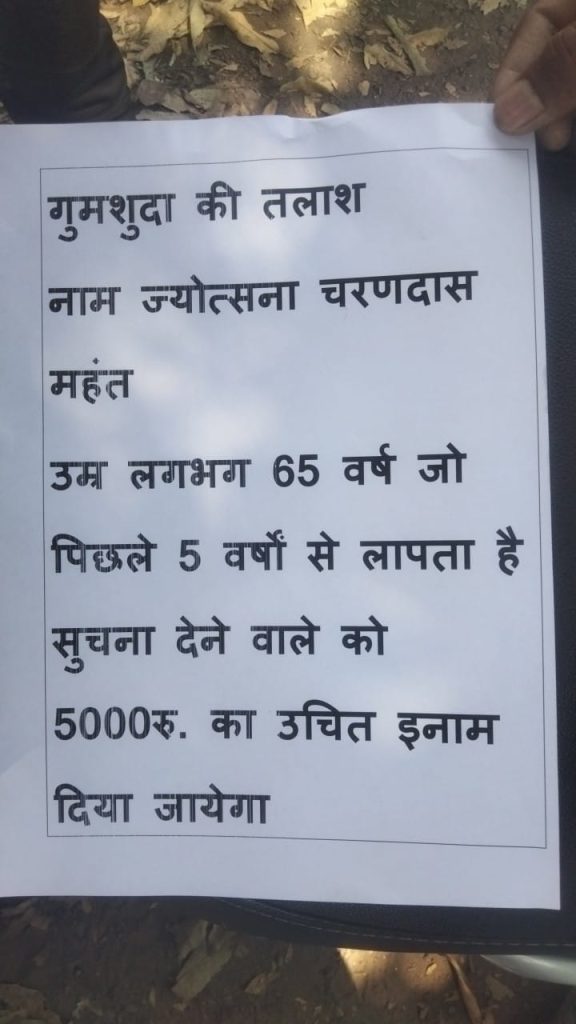 गुमशुदा की तलाश
नाम ज्योत्सना चरणदास
महंत
उम्र लगभग 65 वर्ष जो
पिछले 5 वर्षों से लापता है
सुचना देने वाले को
5000रु. का उचित इनाम
दिया जायेगा